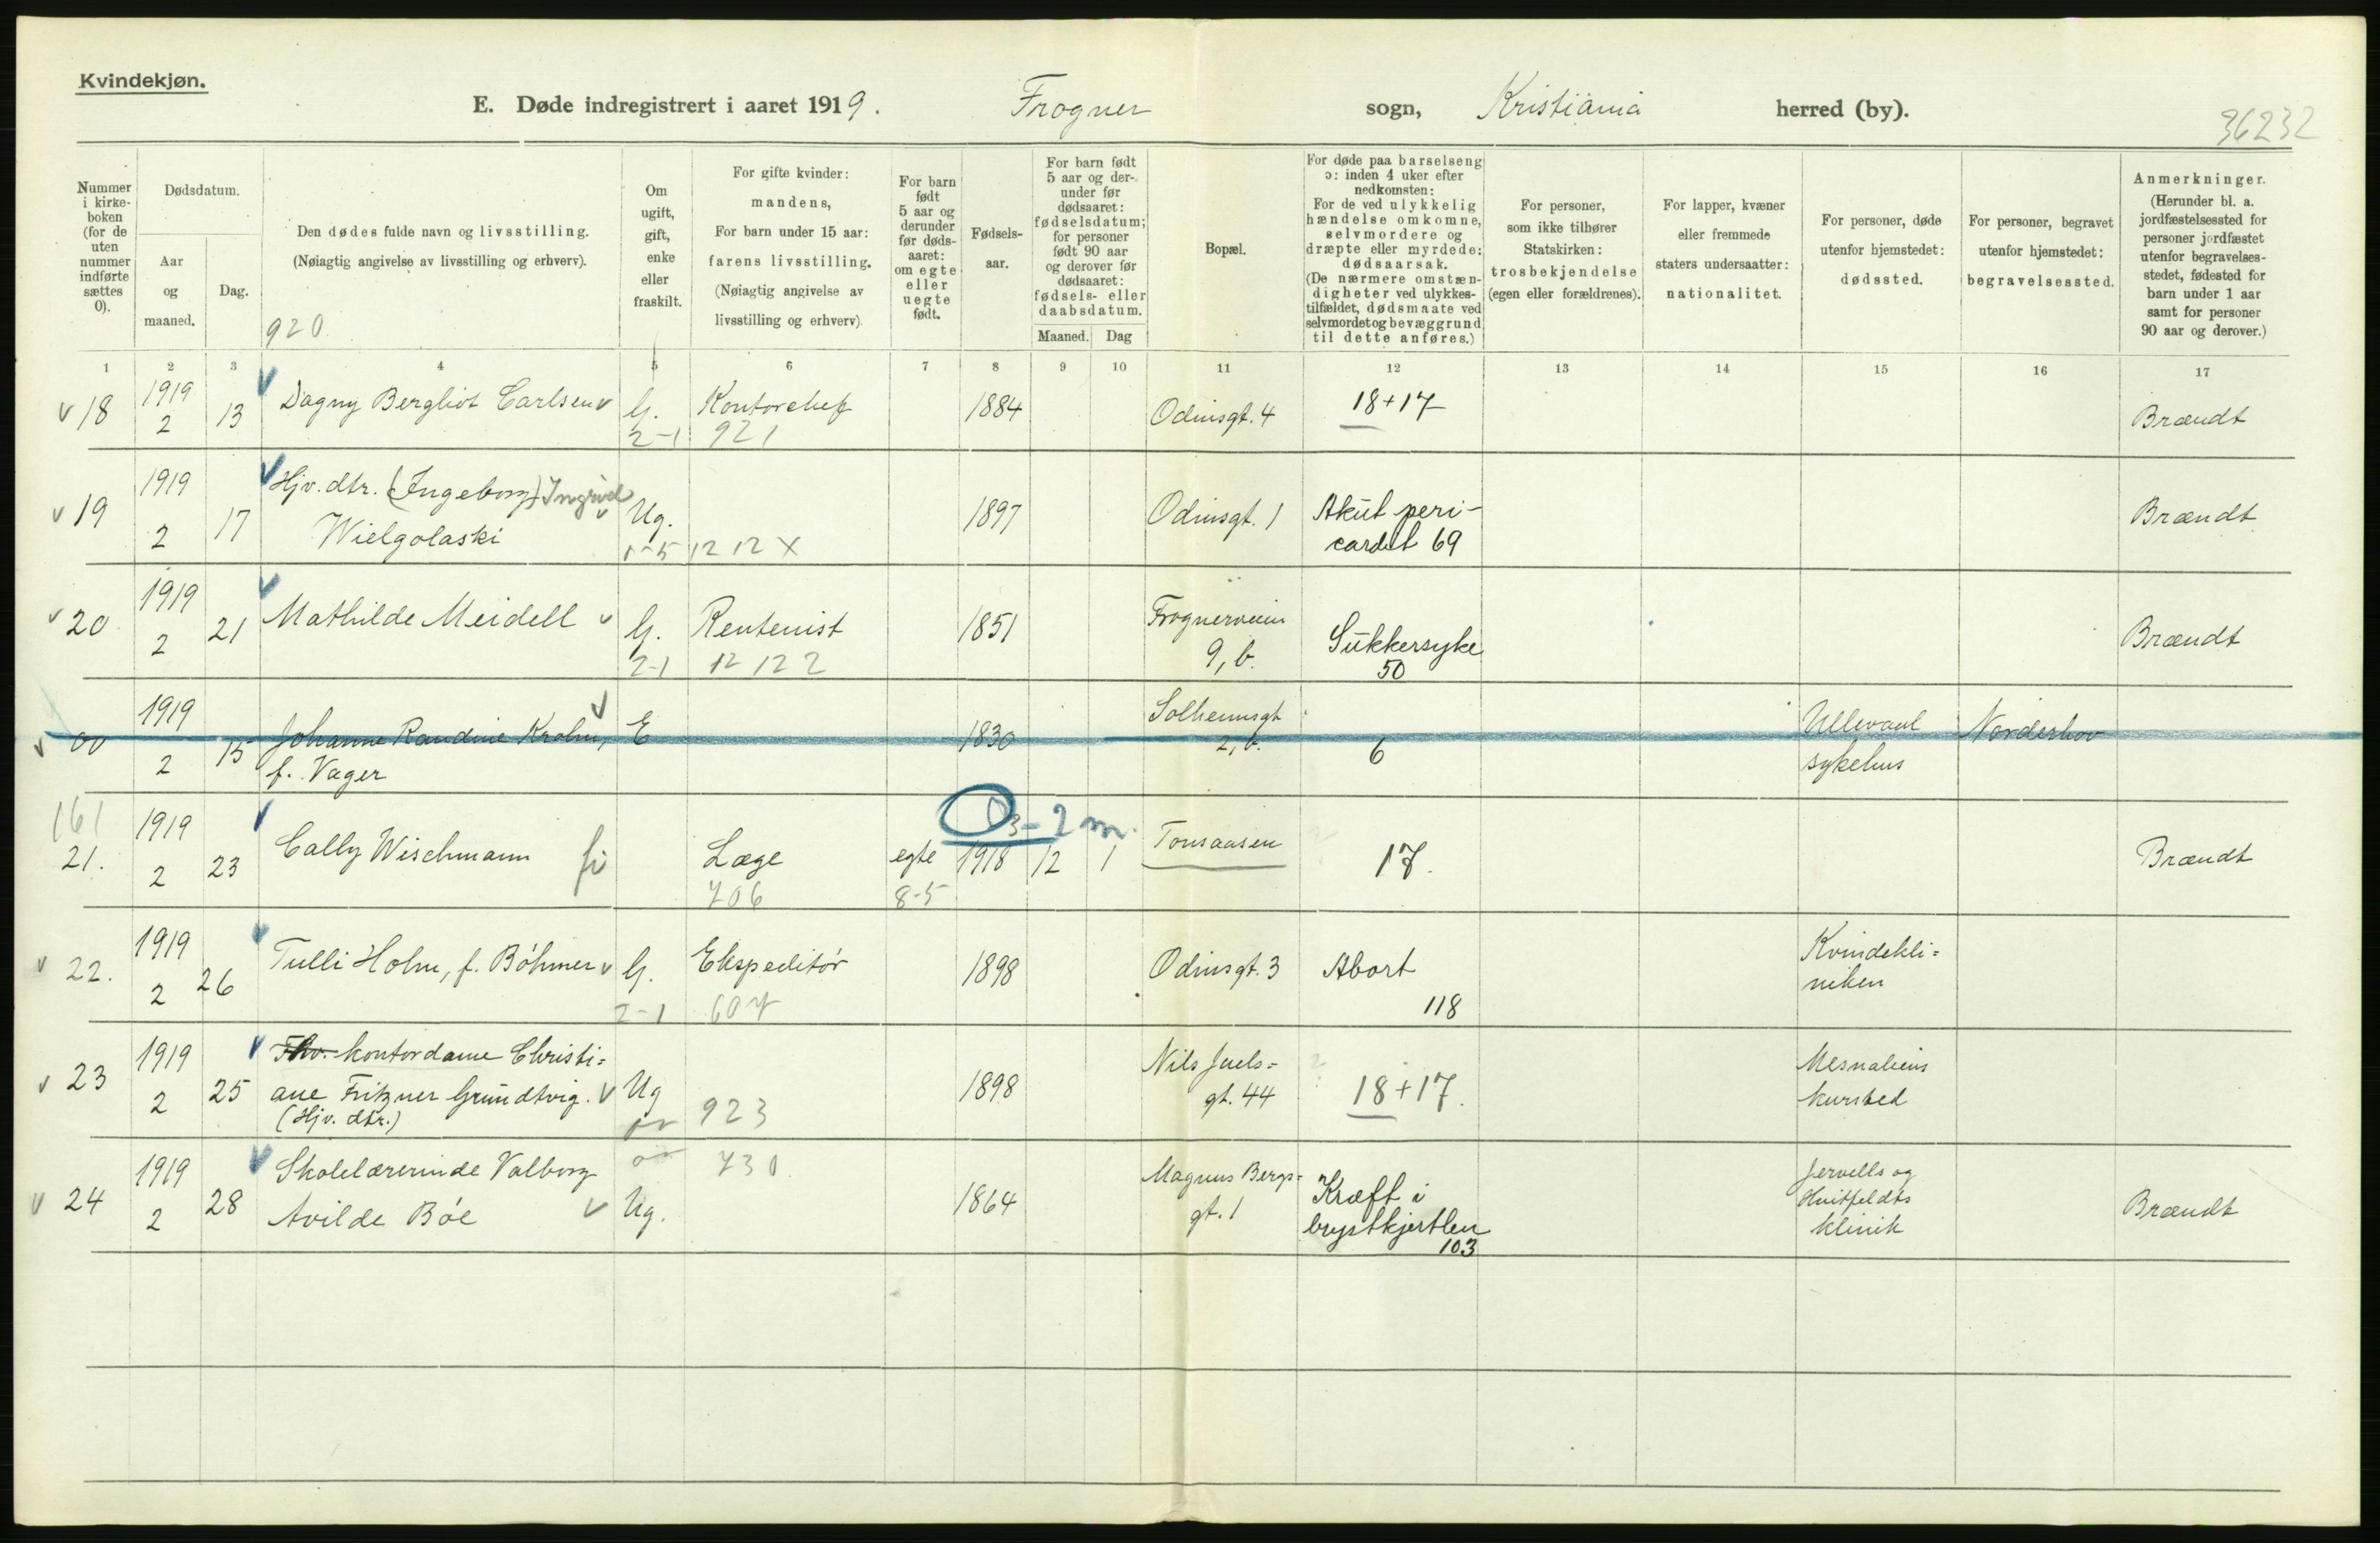 Kvindekjøn.
E. Døde indregistrert i aaret 1919. Frogner sogn, Kristiania herred (by).
36232
Nummer i kirkeboken (for de uten nummer indførte sættes 0).
Dødsdatum.
Aar og maaned.
Dag.
Den dødes fulde navn og livsstilling.
(Nøiagtig angivelse av livsstilling og erhverv).
920
Om ugift, gift, enke eller fraskilt.
For gifte kvinder: mandens, For barn under 15 aar: farens livsstilling. (Nøiagtig angivelse av livsstilling og erhverv).
For barn født 5 aar og derunder før dødsaaret: om egte eller uegte født.
Fødselsaar.
For barn født 5 aar og derunder før dødsaaret: fødselsdatum; for personer født 90 aar og derover før dødsaaret: fødsels- eller daabsdatum.
Maaned. Dag
Bopæl.
For døde paa barselseng ɔ: inden 4 uker efter nedkomsten: For de ved ulykkelig hændelse omkomne, selvmordere og dræpte eller myrdede: dødsaarsak. (De nærmere omstændigheter ved ulykkestilfældet, dødsmaate ved selvmordet og bevæggrund til dette anføres.)
For personer, som ikke tilhører Statskirken: trosbekjendelse (egen eller forældrenes).
For lapper, kvæner eller fremmede staters undersaatter: nationalitet.
For personer, døde utenfor hjemstedet: dødssted.
For personer, begravet utenfor hjemstedet: begravelsessted.
Anmerkninger. (Herunder bl. a. jordfæstelsessted for personer jordfæstet utenfor begravelsesstedet, fødested for barn under 1 aar samt for personer 90 aar og derover.)
1 2 3 4 5 6 7 8 9 10 11 12 13 14 15 16 17
18 1919 2 13 Dagny Bergliot Carlsen G. Kontorchef 1884 Odinsgt. 4 18+17 Brændt
2-1 921
19 1919 2 17 Hjv. dtr. (Ingeborg) Ingrid
Wielgolaski Ug. 1897 Odinsgt. 1 Akut peri-
cardit 69 Brændt
12 12 X
20 1919 2 21 Mathilde Meidell G. Rentenist 1851 Frognerveien
9, b. Sukkersyke
50 Brændt
2-1 12 12 2
00 1919 2 15 Johanne Randine Krohn,
f. Vager E 1830 Solheimsgt
2, b. 6 Ullevaal
sykehus Norderhov
161
21. 1919 2 23 Cally Wischmann Læge egte 1918 12 1 Tonsaasen 17. Brændt
3-2 m.
706 8-5
22. 1919 2 26 Tulli Holm, f. Böhmer G. Ekspeditør 1898 Odinsgt. 3 Abort
118 Kvindekli=
niken
2-1 607
23 1919 2 25 Fhv. kontordame Christi=
ane Fritzner Grundtvig.
(Hjv. dtr.) Ug 923 1898 Nils Juels=
gt. 44 18+17. Mesnaliens
kursted
24 1919 2 28 Skolelærerinde Valborg
Avilde Böe Ug. 730 1864 Magnus Bergs=
gt. 1 Kræft i
brystkjertlen
103 Jervells og
Huitfeldts
klinik Brændt